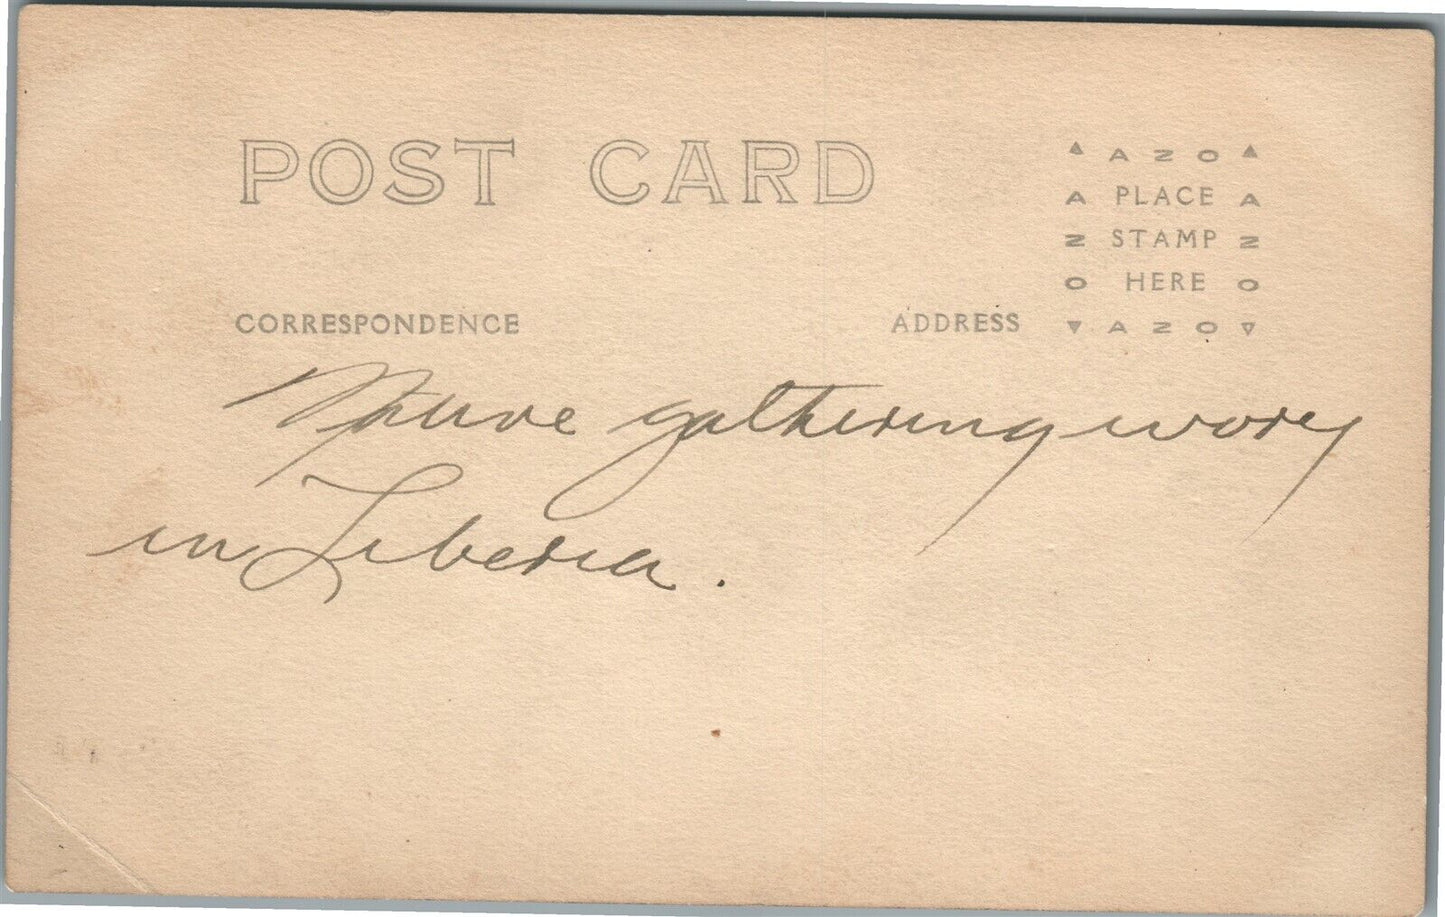 POST CARD
▲ A Z O ▲
A PLACE A
Z STAMP Z
O HERE O
▼ A Z O ▽
CORRESPONDENCE
ADDRESS
Native gathering ivory
in Liberia.